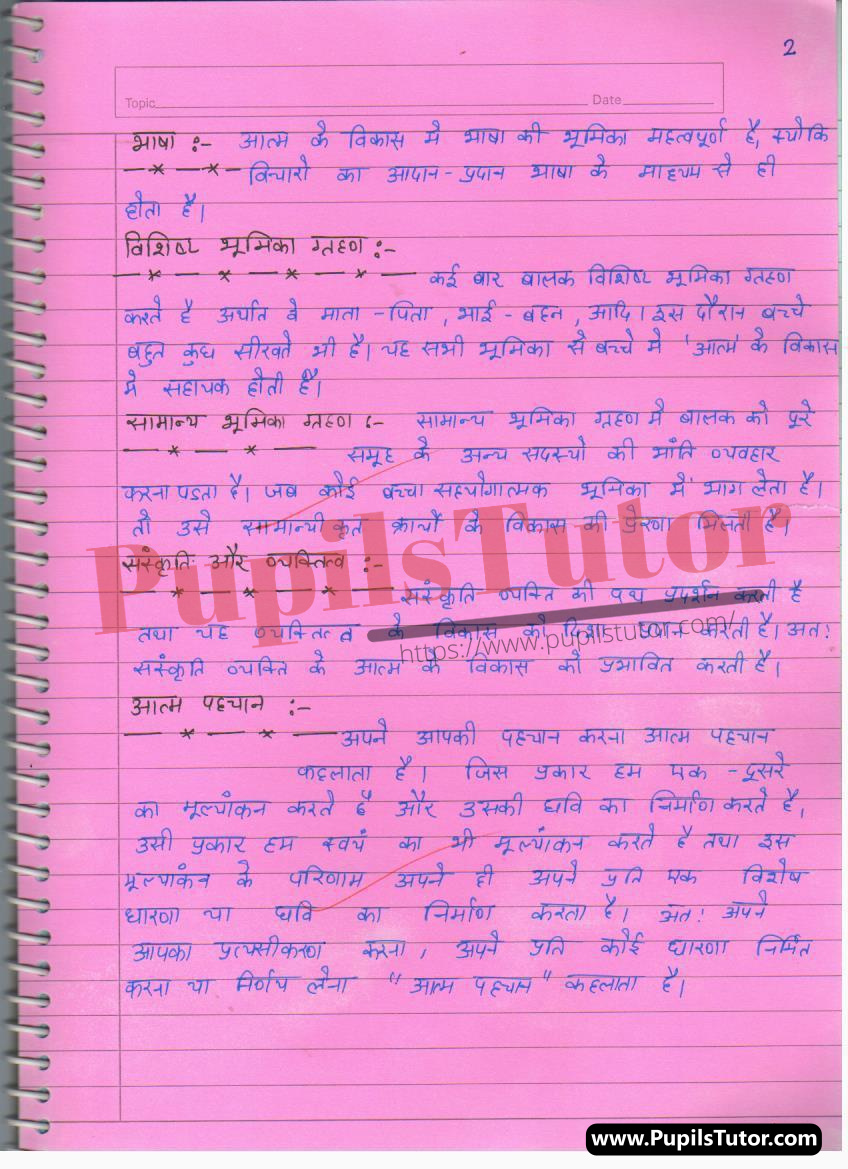 2
Topic
Date
भाषा :- आत्म के विकास मे भाषा की भूमिका महत्वपूर्ण है, क्योकि
विचारो का आदान-प्रदान भाषा के माध्यम से ही
होता है।
विशिष्ट भूमिका ग्रहण :-
कई बार बालक विशिष्ट भूमिका ग्रहण
करते है अर्थात वे माता-पिता, भाई-बहन, आदि। इस दौरान बच्चे
बहुत कुछ सीखते भी है। यह सभी भूमिका से बच्चे मे 'आत्म' के विकास
मे सहायक होती है।
सामान्य भूमिका ग्रहण :- सामान्य भूमिका ग्रहण मे बालक को पूरे
समूह के अन्य सदस्यो की भांति व्यवहार
करना पडता है। जब कोई बच्चा सहयोगात्मक भूमिका में भाग लेता है।
तो उसे सामान्यीकृत कार्यो के विकास की प्रेरणा मिलती है।
संस्कृति और व्यक्तित्व :-
संस्कृति व्यक्ति को पथ प्रदर्शन करती है
तथा यह व्यक्तित्व के विकास को दिशा प्रदान करती है। अत:
संस्कृति व्यक्ति के आत्म के विकास को प्रभावित करती है।
आत्म पहचान :-
अपने आपकी पहचान करना आत्म पहचान
कहलाता है। जिस प्रकार हम एक-दूसरे
का मूल्यांकन करते है और उसकी छवि का निर्माण करते है,
उसी प्रकार हम स्वयं का भी मूल्यांकन करते है तथा इस
मूल्यांकन के परिणाम अपने ही अपने प्रति एक विशेष
धारणा या छवि का निर्माण करता है। अत: अपने
आपका प्रत्यक्षीकरण करना, अपने प्रति कोई धारणा निर्मित
करना या निर्णय लेना "आत्म पहचान" कहलाता है।
PupilsTutor
https://www.pupilstutor.com/
www.PupilsTutor.com